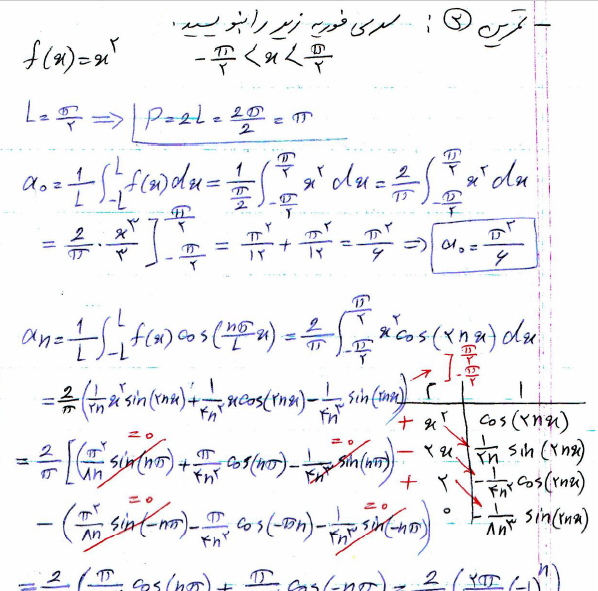 - تمرین ③ : سری فوریه زیر را بنویسید.
f(x)=x^۲    -π/۲ < x < π/۲
L=π/۲ ⇒ P=2L=2π/2=π
a₀=1/L ∫_{-L}^{L} f(x)dx = 1/(π/۲) ∫_{-π/۲}^{π/۲} x^۲ dx = 2/π ∫_{-π/۲}^{π/۲} x^۲ dx
= 2/π · x^۳/۳ ]_{-π/۲}^{π/۲} = π^۲/۱۲ + π^۲/۱۲ = π^۲/۶ ⇒ a₀=π^۲/۶
aₙ=1/L ∫_{-L}^{L} f(x) cos(nπ/L x) = 2/π ∫_{-π/۲}^{π/۲} x^۲ cos(۲nx) dx
= 2/π (1/۲n x^۲ sin(۲nx) + 1/۴n^۲ x cos(۲nx) - 1/۴n^۳ sin(۲nx)) ]_{-π/۲}^{π/۲}
= 2/π [(π^۲/۸n sin(nπ) + π/۴n^۲ cos(nπ) - 1/۴n^۳ sin(nπ))
=0 =0
- (π^۲/۸n sin(-nπ) - π/۴n^۲ cos(-πn) - 1/۴n^۳ sin(-nπ))
=0 =0
= 2/π (π/ cos(nπ) + π/ cos(-nπ) = 2/ (۲π/ (-1)^n)
۲ | 1
+ x^۲ | cos(۲nx)
- ۲x | 1/۲n sin(۲nx)
+ ۲ | -1/۴n^۲ cos(۲nx)
۰ | -1/۸n^۳ sin(۲nx)